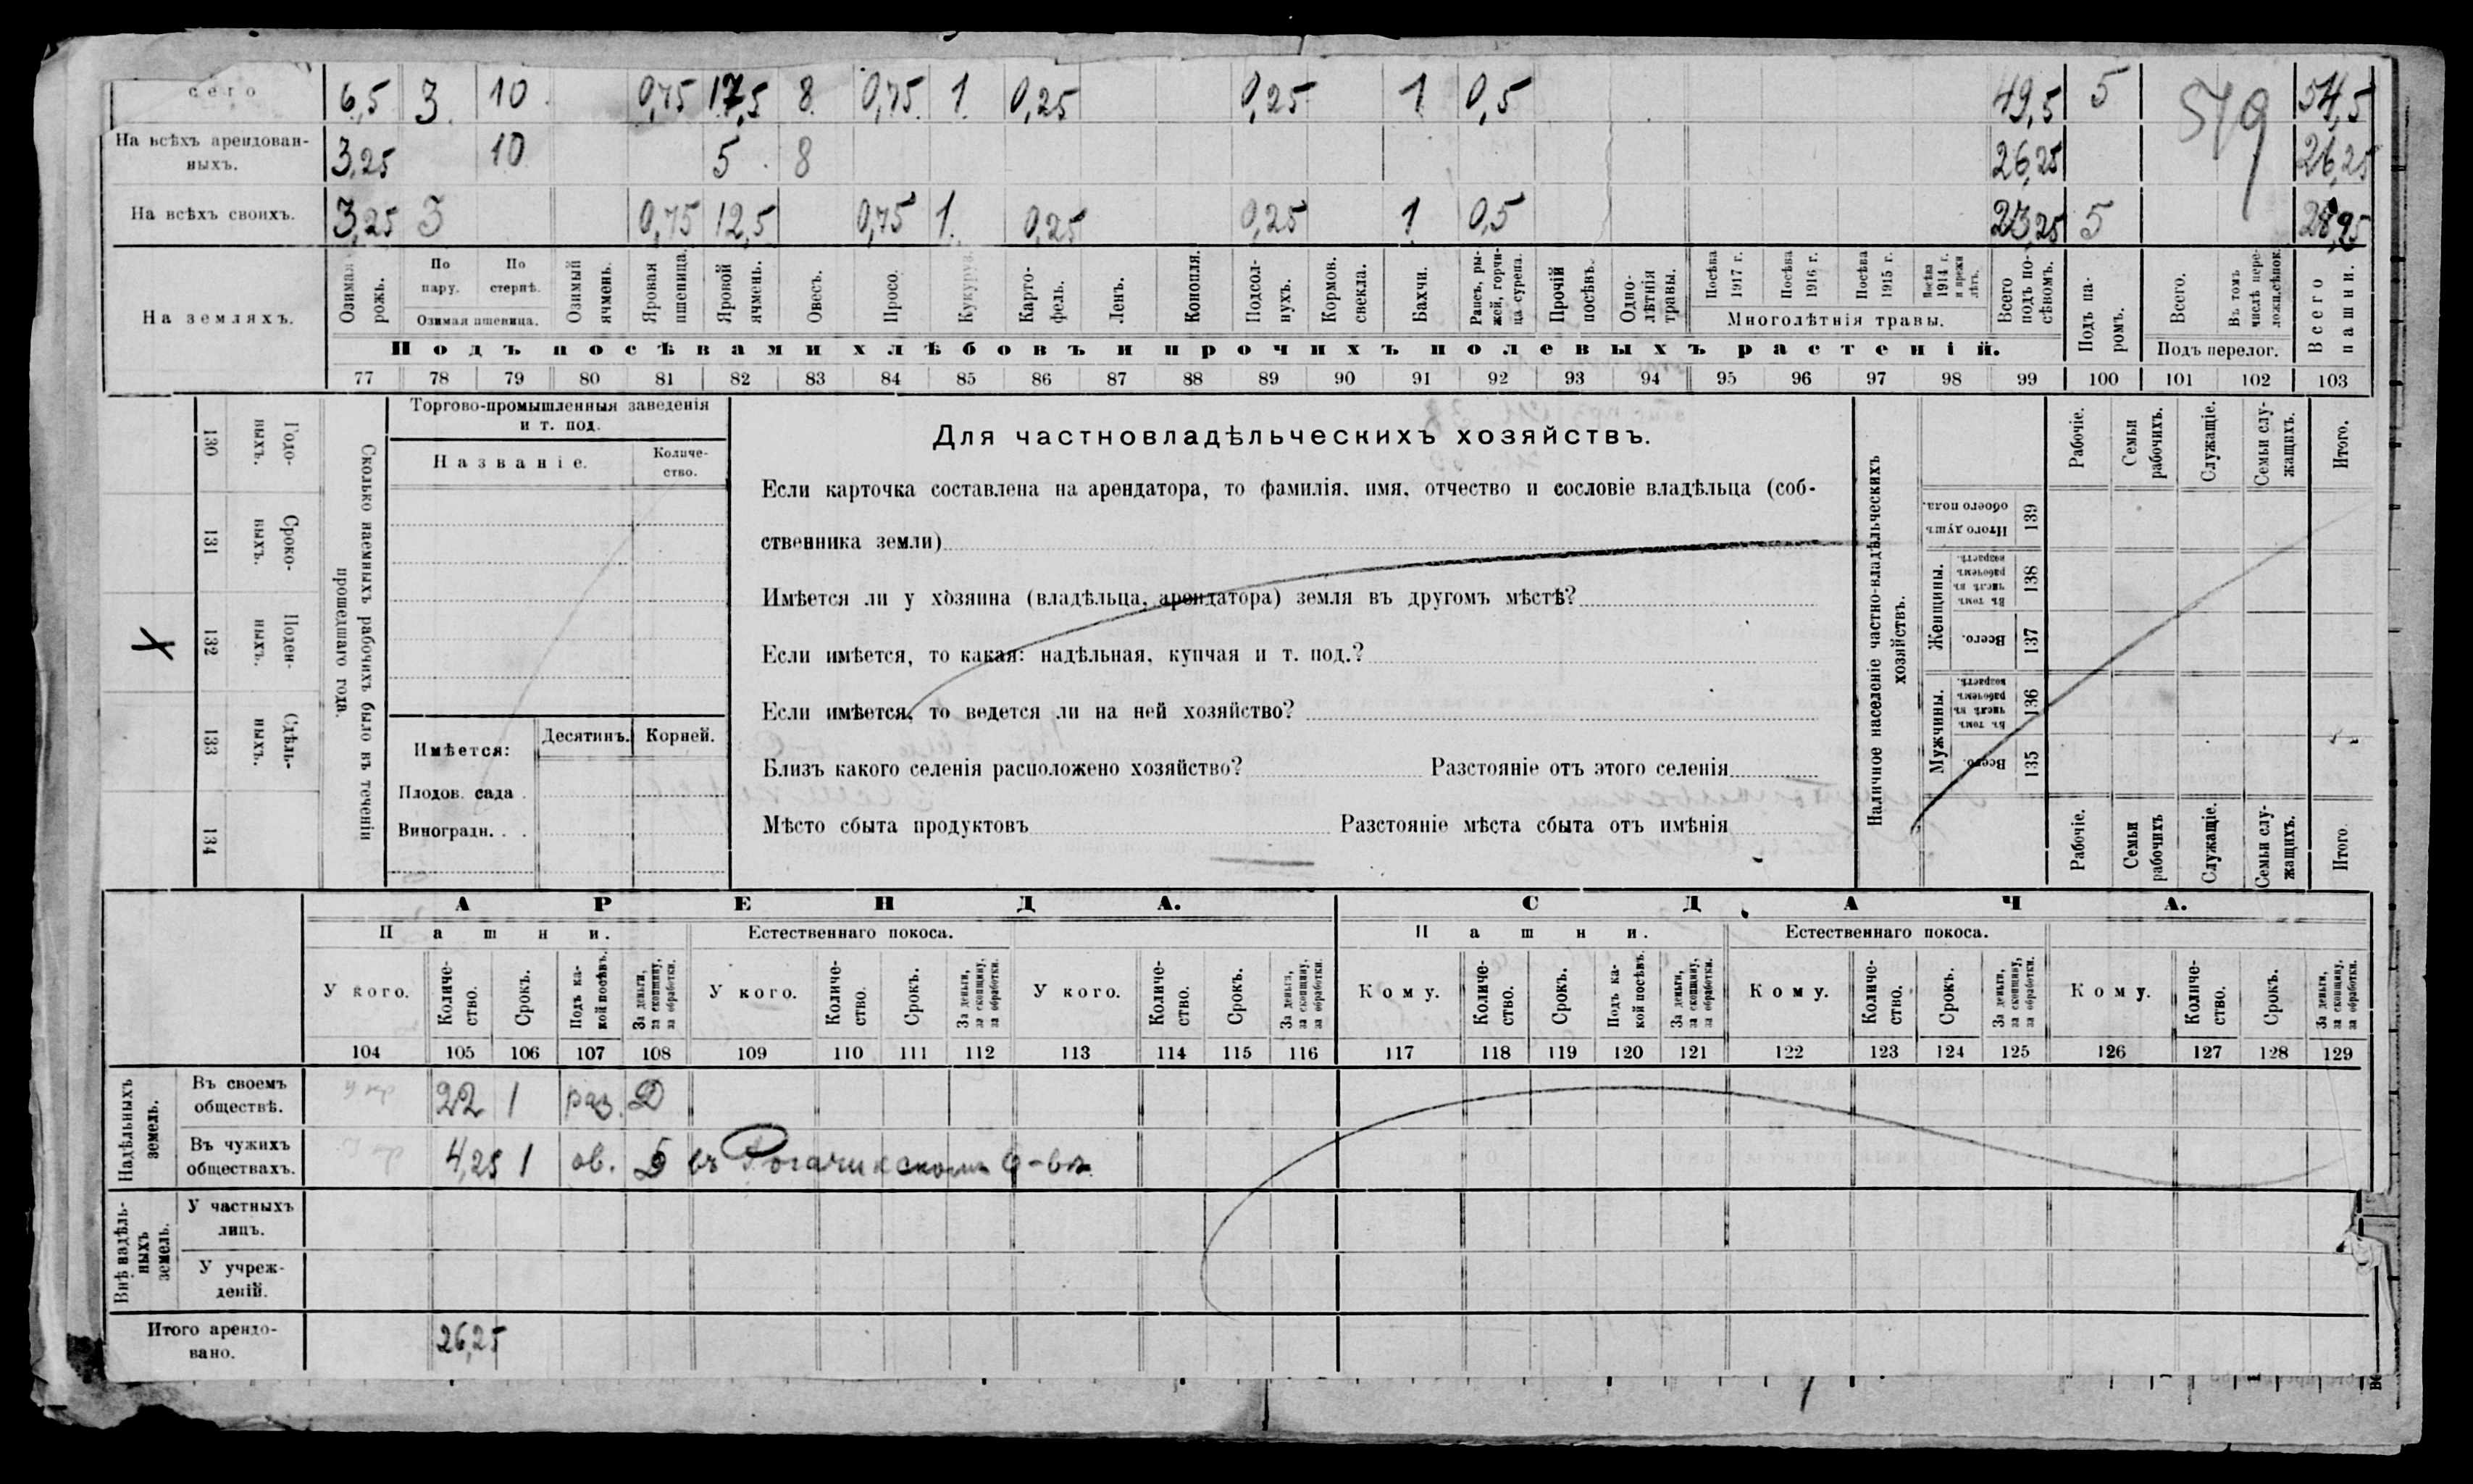 сего 6,5 3 10 0,75 17,5 8 0,75 1 0,25 0,25 1 0,5 49,5 5 54,5
579
На всѣхъ арендован-
ныхъ. 3,25 10 5 8 26,25 26,25
На всѣхъ своихъ. 3,25 3 0,75 12,5 0,75 1 0,25 0,25 1 0,5 23,25 5 28,25
На земляхъ.
Озимая рожь.
По пару.
По стернѣ.
Озимая пшеница.
Озимый ячмень.
Яровая пшеница.
Яровой ячмень.
Овесъ.
Просо.
Кукуруза.
Карто-
фель.
Ленъ.
Конопля.
Подсол-
нухъ.
Кормов.
свекла.
Бахчи.
Рапсъ, ры-
жей, горчи-
ца сурепа.
Прочій
посѣвъ.
Одно-
лѣтнія
травы.
Посѣва
1917 г.
Посѣва
1916 г.
Посѣва
1915 г.
Посѣва
1914 г.
и прежн
лѣтъ.
Многолѣтнія травы.
Всего
подъ по-
сѣвомъ.
Подъ па-
ромъ.
Всего.
Въ томъ
числѣ пере-
Подъ перелог.
Всего
пашни.
Подъ посѣвами хлѣбовъ и прочихъ полевыхъ растеній.
77 78 79 80 81 82 83 84 85 86 87 88 89 90 91 92 93 94 95 96 97 98 99 100 101 102 103
Сколько наемныхъ рабочихъ было въ теченіи
прошедшаго года.
Годо-
выхъ.
130
Сроко-
выхъ.
131
Поден-
ныхъ.
132
Сдѣль-
ныхъ.
133
134
X
Торгово-промышленныя заведенія
и т. под.
Названіе.
Количе-
ство.
Имѣется:
Десятинъ.
Корней.
Плодов. сада .
Виноградн. . .
Для частновладѣльческихъ хозяйствъ.
Если карточка составлена на арендатора, то фамилія, имя, отчество и сословіе владѣльца (соб-
ственника земли)
Имѣется ли у хозяина (владѣльца, арендатора) земля въ другомъ мѣстѣ?
Если имѣется, то какая: надѣльная, купчая и т. под.?
Если имѣется, то ведется ли на ней хозяйство?
Близъ какого селенія расположено хозяйство? Разстояніе отъ этого селенія
Мѣсто сбыта продуктовъ Разстояніе мѣста сбыта отъ имѣнія
Наличное населеніе частно-владѣльческихъ
хозяйствъ.
Рабочіе.
Семьи
рабочихъ.
Служащіе.
Семьи слу-
жащихъ.
Итого.
Итого душъ
обоего пола.
139
Женщины.
Въ томъ
числѣ въ
рабочемъ
возрастѣ.
138
Всего.
137
Мужчины.
Въ томъ
числѣ въ
рабочемъ
возрастѣ.
136
Всего.
135
Рабочіе.
Семьи
рабочихъ
Служащіе.
Семьи слу-
жащихъ.
Итого.
АРЕНДА. СДАЧА.
Пашни. Естественнаго покоса. Пашни. Естественнаго покоса.
У кого.
Количе-
ство.
Срокъ.
Подъ ка-
кой посѣвъ.
За деньги,
за скопщину,
за обработки.
У кого.
Количе-
ство.
Срокъ.
За деньги,
за скопщину,
за обработки.
У кого.
Количе-
ство.
Срокъ.
За деньги,
за скопщину,
за обработки.
Кому.
Количе-
ство.
Срокъ.
Подъ ка-
кой посѣвъ.
За деньги,
за скопщину,
за обработки.
Кому.
Количе-
ство.
Срокъ.
За деньги,
за скопщину,
за обработки.
Кому.
Количе-
ство.
Срокъ.
За деньги,
за скопщину,
за обработки.
104 105 106 107 108 109 110 111 112 113 114 115 116 117 118 119 120 121 122 123 124 125 126 127 128 129
Надѣльныхъ
земель.
Въ своемъ
обществѣ. у кр 22 1 раз. Д
Въ чужихъ
обществахъ. у кр 4,25 1 ов. Д въ Рогачикскомъ о-вѣ
Внѣ надѣль-
ныхъ
земель.
У частныхъ
лицъ.
У учреж-
деній.
Итого арендо-
вано. 26,25